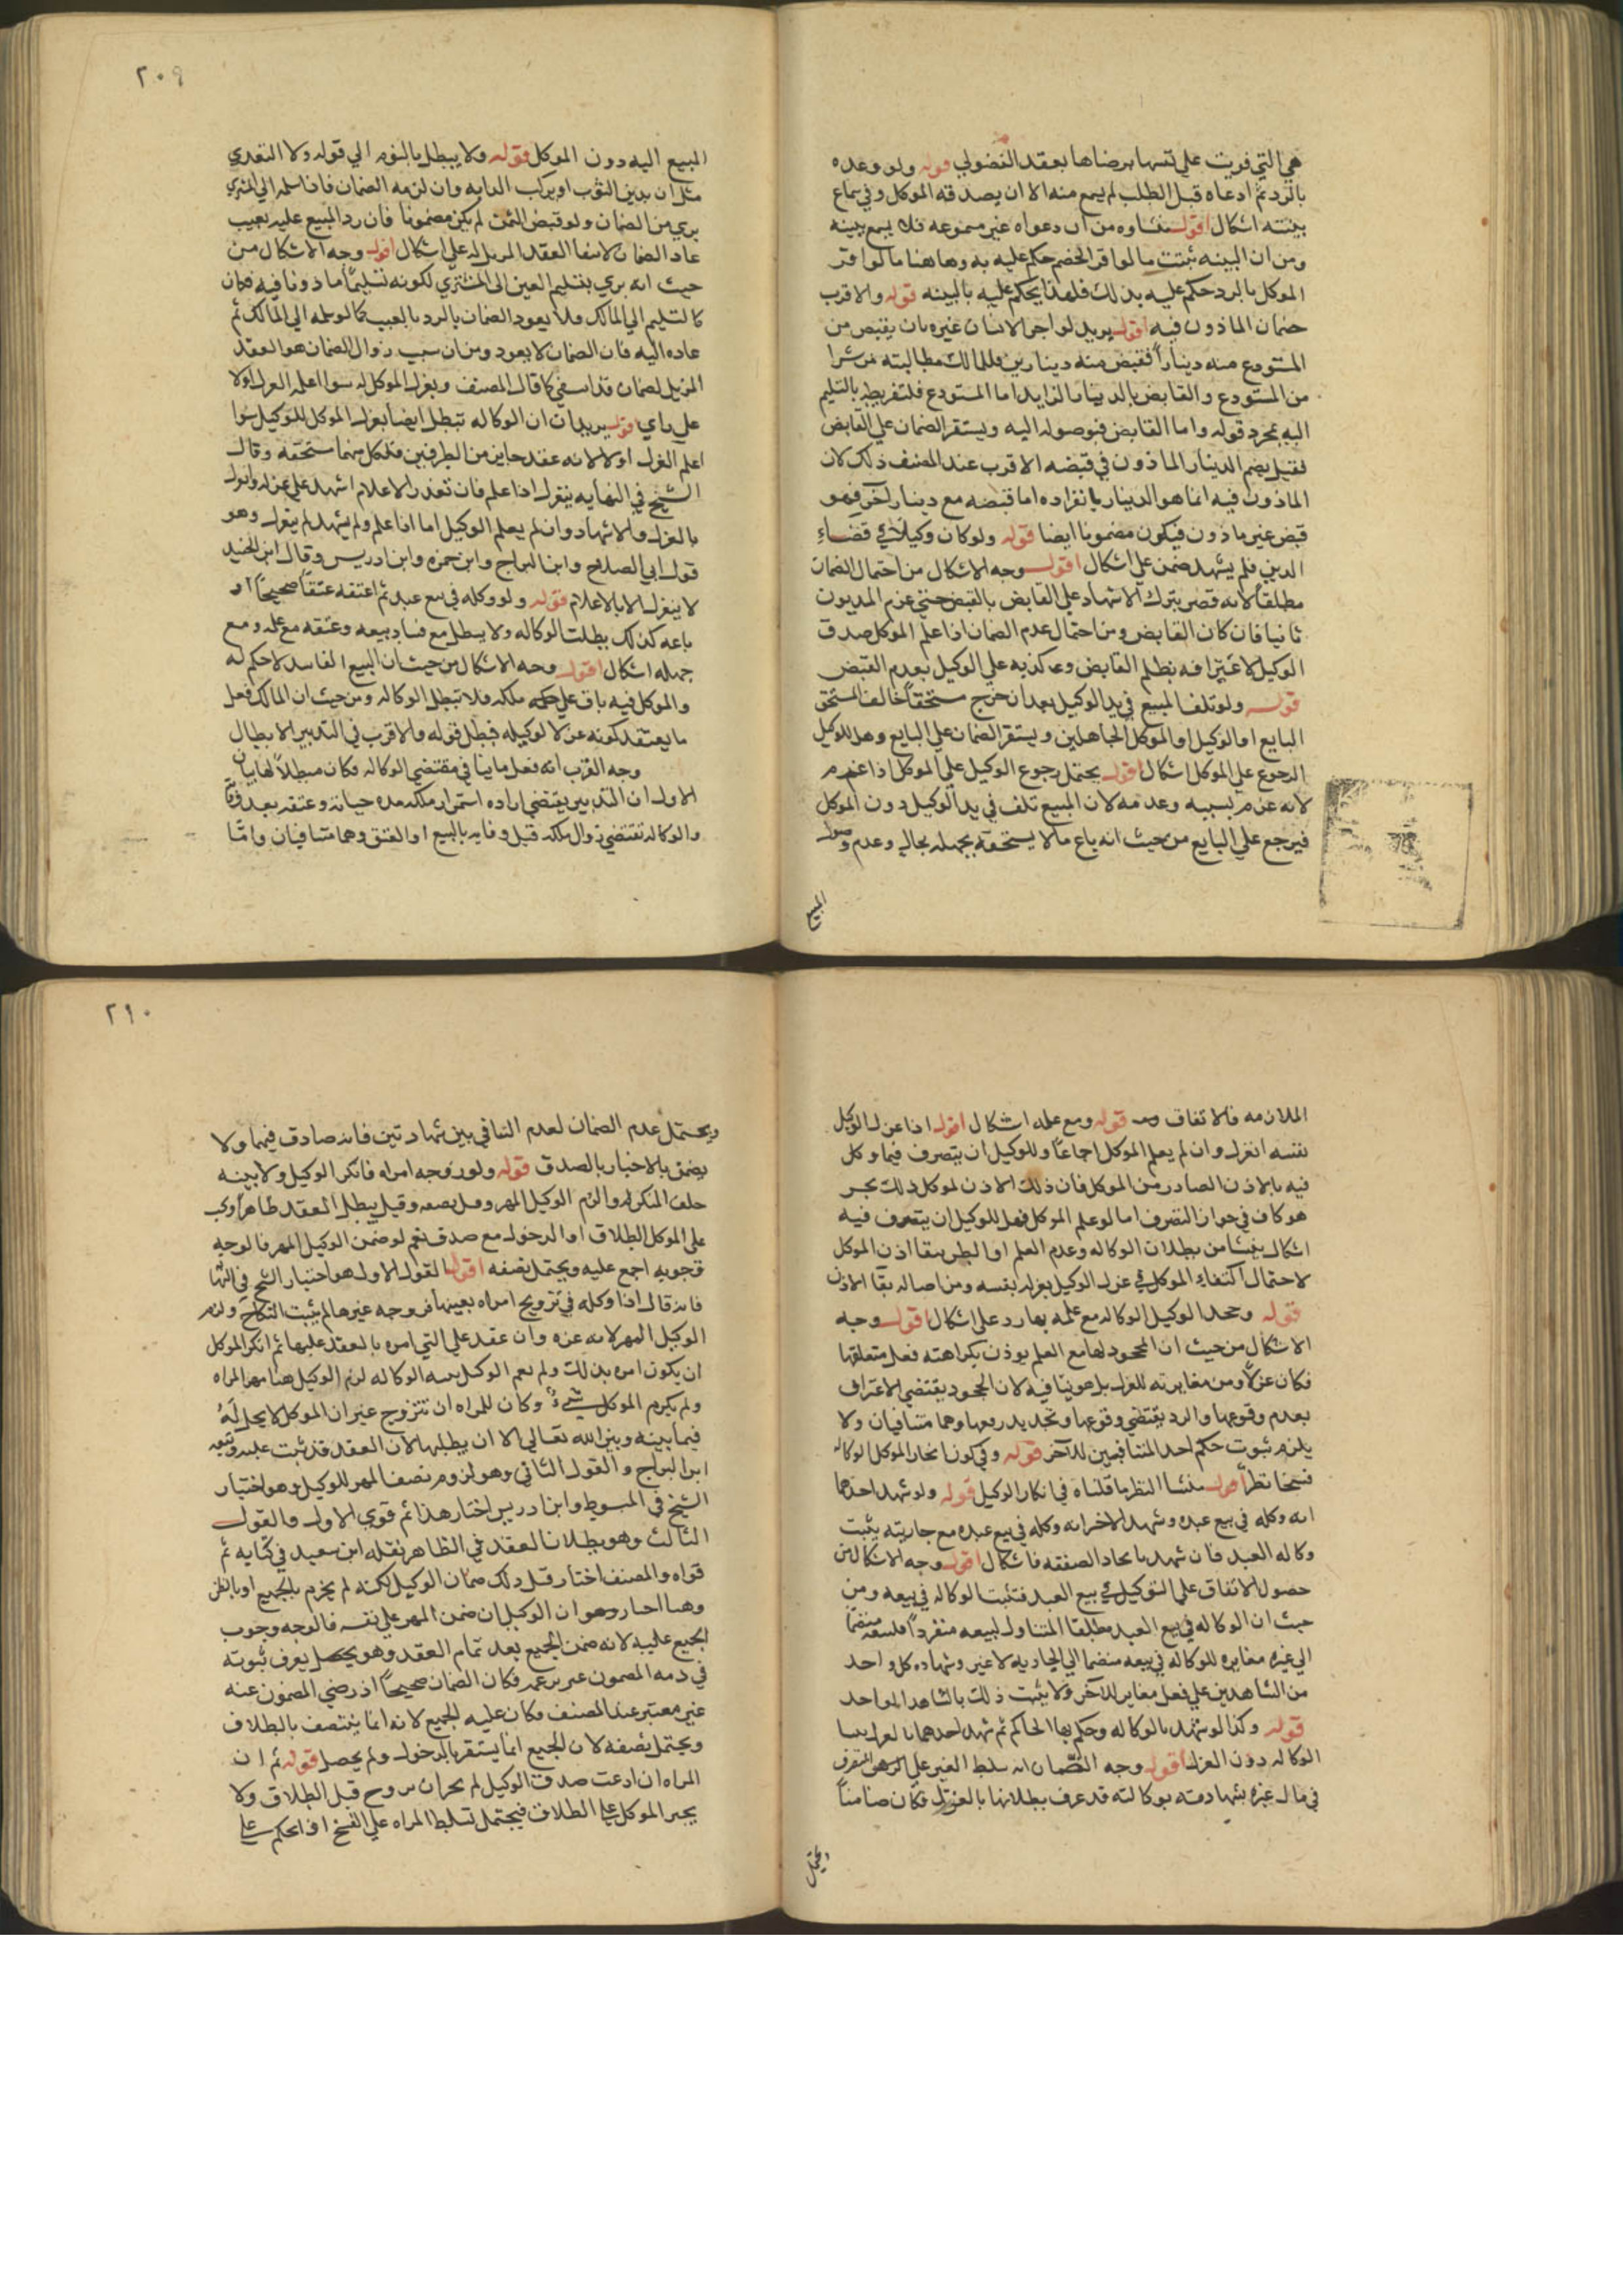 هي التي فوتت على نفسها برضاها بعقد الفضولي قوله ولو وعده
بالرد ثم ادعاه قبل الطلب لم يسمع منه الا ان يصدقه الموكل وفي سماع
بينته اشكال اقول منشاوه من ان دعواه غير مسموعه فلا يسمع بينه
ومن ان البينه تثبت ما لو اقر الخصم حكم عليه به وهاهنا ما لو اقر
الموكل بالرد حكم عليه بذلك فلهذا يحكم عليه بالبينه قوله والاقرب
ضمان الماذون فيه اقول يريد لو اجر الانسان غيره بان يقبض من
المستودع منه دينارا فقبض منه دينارين فللمالك مطالبته من شا
من المستودع والقابض بالدينار الزايد اما المستودع فلتفريطه بالتسليم
اليه بمجرد قوله واما القابض فبوصوله اليه ويستقر الضمان على القابض
فقيل يضم الدينار الماذون في قبضه الاقرب عند المصنف ذلك لان
الماذون فيه انما هو الدينار بانفراده اما قبضه مع دينار اخر فهو
قبض غير ماذون فيكون مضمونا ايضا قوله ولو كان وكيلا في قضاء
الدين فلم يشهد ضمن على اشكال اقول وجه الاشكال من احتمال الضمان
مطلقا لانه قصر بترك الاشهاد على القابض بالقبض حتى غرم المديون
ثانيا فان كان القابض ومن احتمال عدم الضمان اذا علم الموكل صدق
الوكيل لاعترافه بظلم القابض وكذبه على الوكيل بعدم القبض
قوله ولو تلف المبيع في يد الوكيل بعد ان خرج مستحقا خالف المستحق
البايع او الوكيل او الموكل الجاهلين ويستقر الضمان على البايع وهل للوكيل
الرجوع على الموكل اشكال اقول يحتمل رجوع الوكيل على الموكل اذا غرم
لانه غرم بسببه وعدمه لان المبيع تلف في يد الوكيل دون الموكل
فيرجع على البايع من حيث انه باع ما لا يستحقه بجهله بحاله وعدم وصول
المبيع
٢٠٩
المبيع اليه دون الموكل قوله ولا يبطل بالنوم الى قوله ولا التعدي
مثل ان يلبس الثوب او يركب الدابه وان لزمه الضمان فاذا سلمه الى المشتري
بري من الضمان ولو قبض الثمن لم يكن مضمونا فان رد المبيع عليه بعيب
عاد الضمان لانتفا العقد المزيل له على اشكال اقول وجه الاشكال من
حيث انه بري بتسليم العين الى المشتري لكونه تسليما ماذونا فيه فكان
كالتسليم الى المالك فلا يعود الضمان بالرد بالعيب كما لو سلمه الى المالك ثم
عاده اليه فان الضمان لا يعود ومن ان سبب زوال الضمان هو العقد
المزيل لضمان قد انتفى كما قال المصنف وبعزل الموكل له سوا اعلمه العزل اولا
على راي قوله يريد ان ان الوكاله تبطل ايضا بعزل الموكل للوكيل سوا
اعلم العزل اولا لانه عقد جايز من الطرفين فلكل منهما مستحقه وقال
الشيخ في النهايه ينعزل اذا علم فان تعذر الاعلام اشهد على عزله وانعزل
بالعزل والاشهاد وان لم يعلم الوكيل اما اذا علم ولم يشهد لم ينعزل وهو
قول ابي الصلاح وابن البراج وابن حمزه وابن ادريس وقال ابن الجنيد
لا ينعزل الا بالاعلام قوله ولو وكله في بيع عبد ثم اعتقه عتقا صحيحا او
باعه كذلك بطلت الوكاله ولا يبطل مع فساد بيعه وعتقه مع علمه ومع
جهله اشكال اقول وجه الاشكال من حيث ان البيع الفاسد لا حكم له
والموكل فيه باق على حكم ملكه فلا تبطل الوكاله ومن حيث ان المالك فعل
ما يعتقد كونه عزلا لوكيله فبطل قوله والاقرب في التدبير الابطال
وجه القرب انه فعل ما ينافي مقتضى الوكاله فكان مبطلا لها بيان
الاول ان التدبير يقتضي اراده استمرار ملكه مده حياته وعتقه بعد وفاته
والوكاله تقتضي زوال ملكه قبل وفاته بالبيع او العتق وهما متنافيان واما
الملازمه فالاتفاق قوله ومع علمه اشكال اقول اذا عزل الوكيل
نفسه انعزل وان لم يعلم الموكل اجماعا وللوكيل ان يتصرف فيما وكل
فيه بالاذن الصادر من الموكل فان ذلك الاذن لموكل ذلك
هو كاف في جواز التصرف اما لو علم الموكل فهل للوكيل ان يتصرف فيه
اشكال ينشا من بطلان الوكاله وعدم العلم او الظن ببقا اذن الموكل
لاحتمال اكتفاء الموكل في عزل الوكيل بعزله نفسه ومن اصاله بقا الاذن
قوله وجحد الوكيل الوكاله مع علمه بها رد على اشكال اقول وجه
الاشكال من حيث ان الجحود لها مع العلم يوذن بكراهته فعل متعلقها
فكان عزلا ومن مغايرته للعزل بل هو ينافيه لان الجحود يقتضي الاعتراف
بعدم وقوعها والرد يقتضي وقوعها وتجديد رفعها وهما متنافيان ولا
يلزم ثبوت حكم احد المتنافيين للاخر قوله وفي كون انكار الموكل الوكاله
فسخا نظر اقول منشا النظر ما قلناه في انكار الوكيل قوله ولو شهد احدهما
انه وكله في بيع عبده وشهد الاخر انه وكله في بيع عبده مع جاريته يثبت
وكاله العبد فان شهد باتحاد الصفقه فاشكال اقول وجه الاشكال من
حصول الاتفاق على التوكيل في بيع العبد فتثبت الوكاله في بيعه ومن
حيث ان الوكاله في بيع العبد مطلقا المتناول لبيعه منفردا منضما
الى غيره مغايره للوكاله في بيعه منضما الى الجاريه لا غير وشهاده كل واحد
من الشاهدين على فعل مغاير للاخر ولا يثبت ذلك بالشاهد الواحد
قوله وكذا لو شهد بالوكاله وحكم بها الحاكم ثم شهد احدهما بالعزل
الوكاله دون العزل اقول وجه الضمان انه سلط الغير على التصرف
في مال غيره بشهادته بوكالته قد عرف بطلانها بالعزل فكان ضامنا
ويحتمل
٢١٠
ويحتمل عدم الضمان لعدم التنافي بين شهادتين فانه صادق فيهما ولا
يضمن بالاخبار بالصدق قوله ولو زوجه امراه فانكر الوكيل ولا بينه
حلف المنكر والزم الوكيل المهر وقيل نصفه وقيل يبطل العقد ظاهرا ويجب
على الموكل الطلاق او الدخول مع صدقه نعم لو ضمن الوكيل المهر فالوجه
وجوبه اجمع عليه ويحتمل نصفه اقول القول الاول هو اختيار الشيخ في النهايه
فانه قال اذا وكله في تزويج امراه بعينها فزوجه غيرها لم يثبت النكاح ولزم
الوكيل المهر لانه غره وان عقد على التي امره بالعقد عليها ثم انكر الموكل
ان يكون امره بذلك ولم يقم الوكيل بينه الوكاله لزم الوكيل هنا مهر المراه
ولم يلزم الموكل شيء وكان للمراه ان تتزوج غير ان الموكل لا يحل له
فيما بينه وبين الله تعالى الا ان يطلبها لان العقد قد ثبت عليه وتبعه
ابن البراج والقول الثاني وهو لزوم نصف المهر للوكيل وهو اختيار
الشيخ في المبسوط وابن ادريس اختار هذا ثم قوى الاول والقول
الثالث وهو بطلان العقد في الظاهر نقله ابن سعيد في كتابه ثم
قواه والمصنف اختار قبل ذلك ضمان الوكيل لكنه لم يجزم بالجميع او بالنصف
وهنا اختار وهو ان الوكيل ان ضمن المهر على نفسه فالوجه وجوب
الجميع عليه لانه ضمن الجميع بعد تمام العقد وهو يحصل يعرف ثبوته
في ذمه المضمون فكان الضمان صحيحا اذ رضى المضمون عنه
غير معتبر عند المصنف فكان عليه الجميع لانه انما ينتصف بالطلاق
ويحتمل نصفه لان الجميع انما يستقر بالدخول ولم يحصل قوله ثم ان
المراه ان ادعت صدق الوكيل لم يجز ان تتزوج قبل الطلاق ولا
يجبر الموكل على الطلاق فيحتمل تسلط المراه على الفسخ او الحكم على